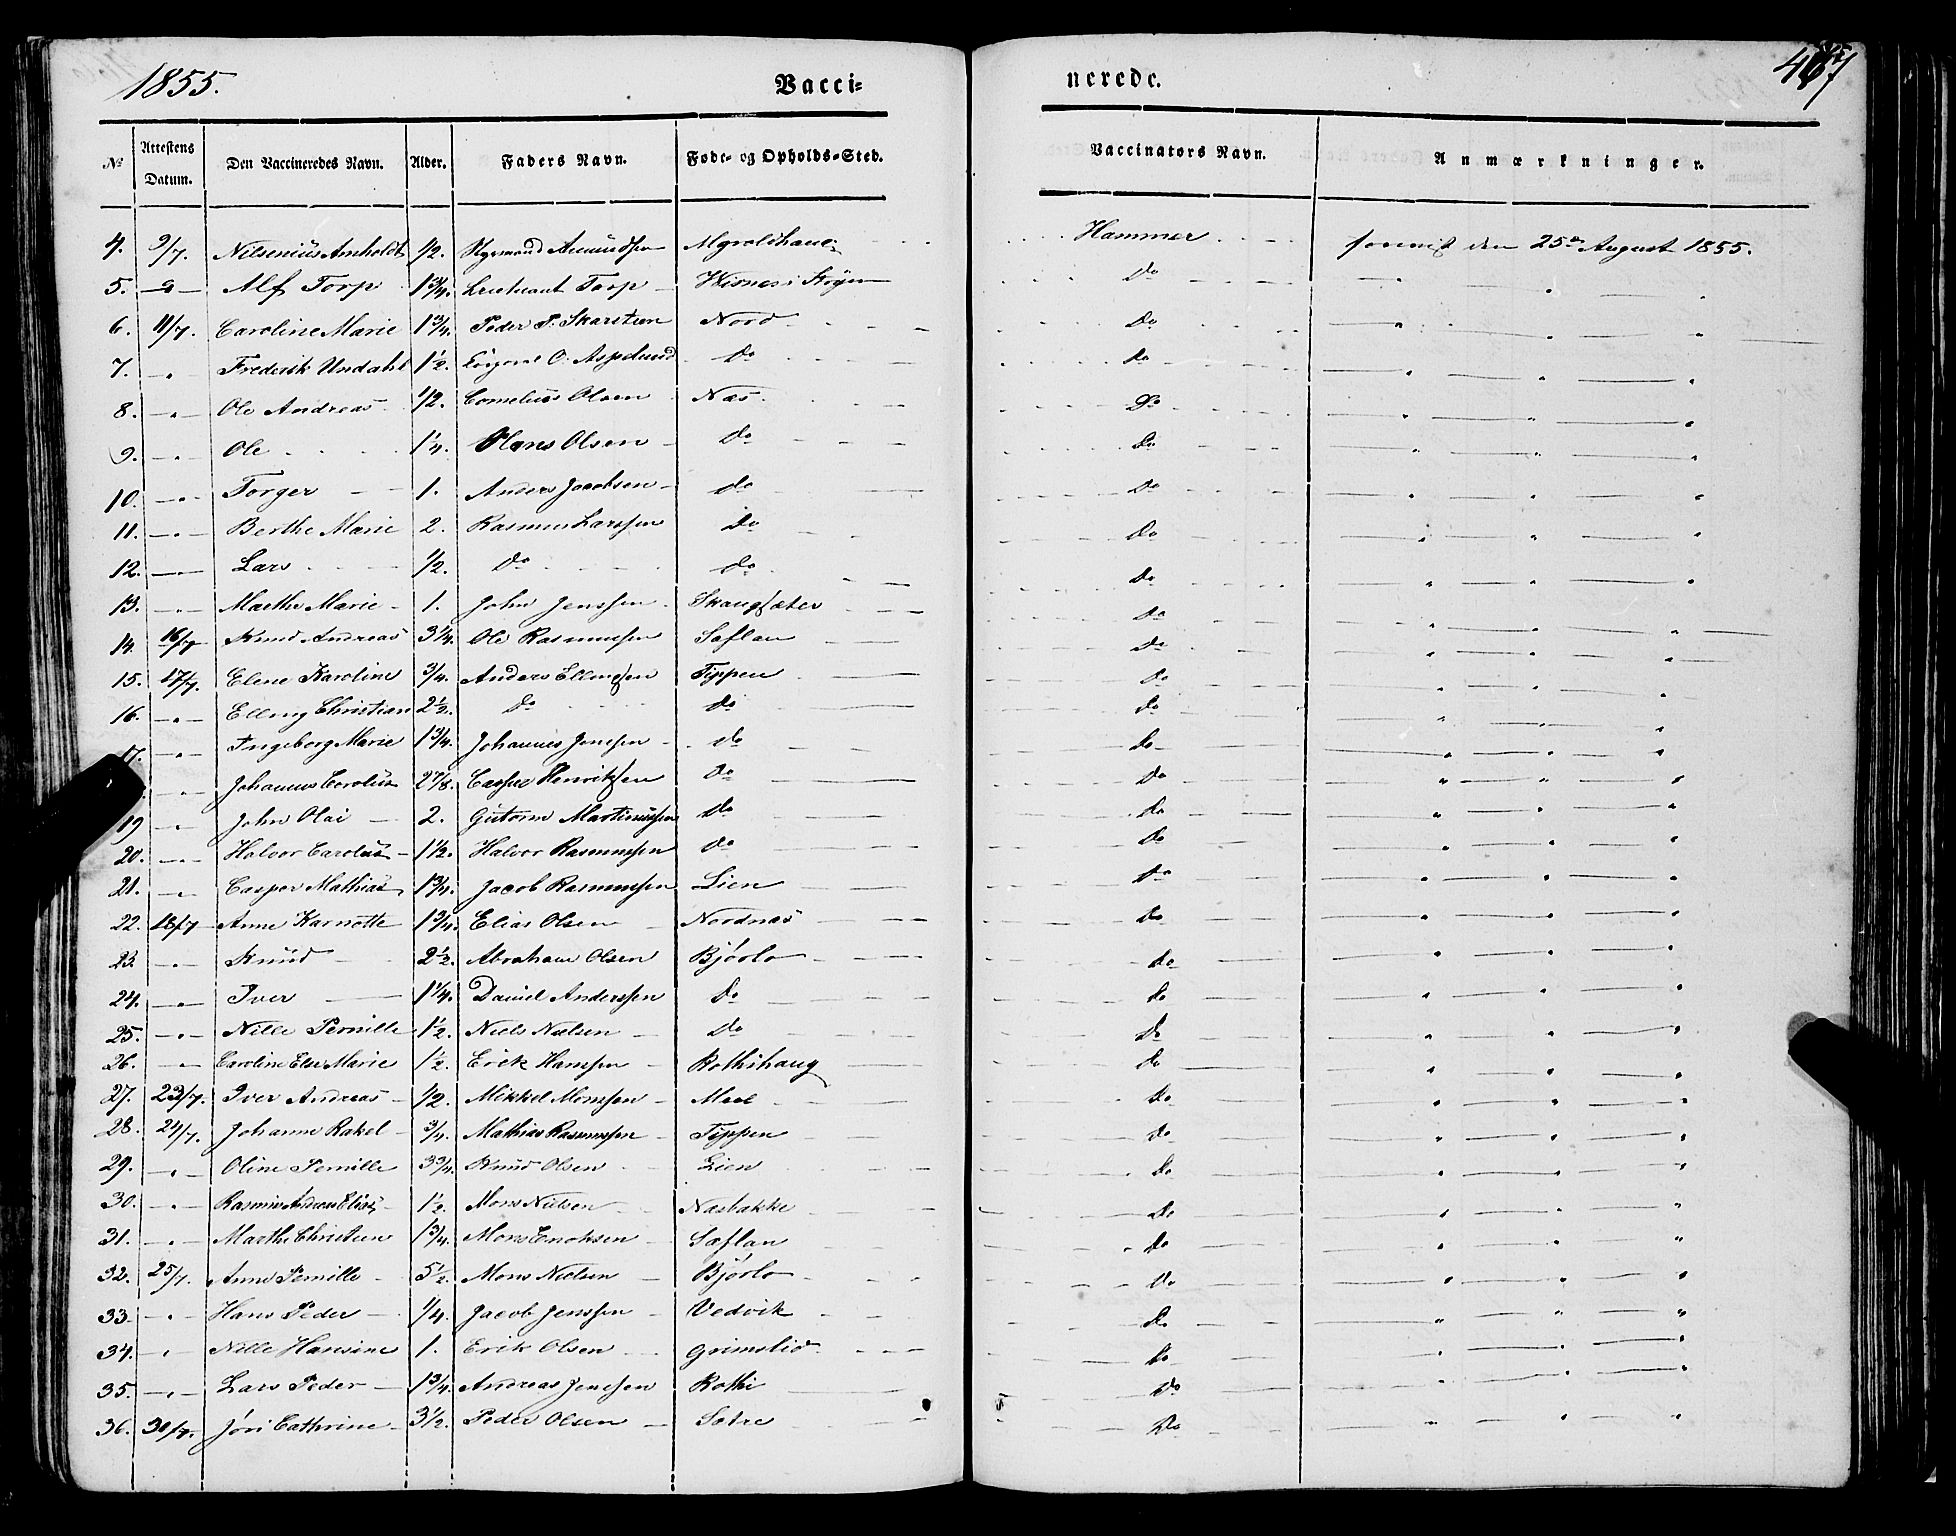 1855.
Vacci-
nerede.
No
Attestens Datum.
Den Vaccineredes Navn.
Alder.
Faders Navn.
Føde- og Opholds-Sted.
Vaccinators Navn.
Anmærkninger.
4. 9/7. Nilsenius Arnholdt 1/2. Hammer foreviist den 25de August 1855.
5. Alf Torp 1 3/4. Lieutenant Torp Do
6. 11/7. Caroline Marie 1 3/4. Peder P. Skarsteen Nord Do
7. " Frederik Undahl 1 1/2. O. Aspelund Do Do
8. " Ole Andreas 1/2. Cornelius Olsen Næs Do
9. " Ole 1 1/4. Hans Olsen Do Do
10. " Torger 1. Anders Jacobsen do Do
11. " Berthe Marie 2. Rasmus Larssen Do Do
12. " Lars 1/2. Do do Do
13. " Marthe Marie 1. John Jenssen Skaugsæter Do
14. 16/7 Knud Andreas 3 1/4. Ole Rasmussen Saflan Do
15. 17/7. Elene Karoline 3/4. Anders Ellingsen Tippen Do
16. " Elling Christian 2 1/2. Do do do
17. " Ingeborg Marie 1 3/4. Johannes Jensen do do
" Johannes Carolius 2 7/8. Casper Henriksen Do Do
19 " John Olai 2. Gutorm Martinussen do do
20. " Halvor Carolus 1 1/2. Halvor Rasmussen do Do
21. " Casper Mathias 1 3/4. Jacob Rasmussen Lien do
22. 18/7 Anne Karnotte 1 3/4. Elias Olsen Nordnæs Do
23. " Knud 2 1/2. Abraham Olsen Bjørlo do
24. " Iver 1 1/4. Daniel Anderssen Do do
25. " Nille Pernille 1 1/2. Niels Nielsen Do Do
26. " Caroline Else Marie 1 1/2. Erik Hanssen Rothihaug Do
27. 23/7. Iver Andreas 1/2. Mikkel Monssen Do
28. 24/7. Johanne Rakel 3/4. Mathias Rasmussen Tippen Do
29. " Oline Pernille 3 3/4. Knud Olsen Lien Do
30. " Rasmus Andreas Elias 1 1/2. Mons Nielsen Næsbakke Do
31. " Marthe Christine 1 3/4. Mons Enoksen Sæflan Do
32. 25/7. Anne Pernille 5 1/2. Mons Nielsen Bjørlo Do
33. " Hans Peder 1/4. Jacob Jenssen Vedvik Do
34. " Nille Hansine 1. Erik Olsen Grimelid Do
35. " Lars Peder 1 3/4. Andreas Jenssen Rothi Do
36. 30/7. Jøri Cathrine 3 1/2. Peder Olsen Sætre Do